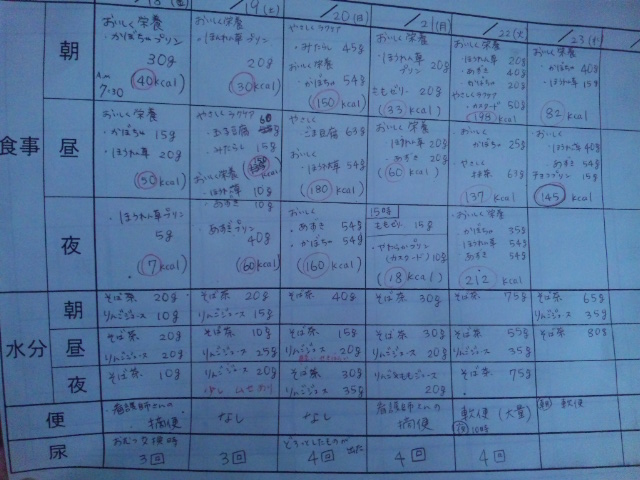 18(金) 19(土) 20(日) 21(月) 22(火) 23(水)
食事
朝
おいしく栄養
・かぼちゃプリン
30g
A.m 7:30
40kcal
おいしく栄養
・ほうれん草
20g
30kcal
やさしく
・みたらし 45g
おいしく栄養
・かぼちゃ 54g
150kcal
おいしく栄養
・ほうれん草プリン 20g
ももゼリー 20g
(33kcal)
おいしく栄養
ほうれん草 20g
あずき 40g
かぼちゃ 20g
やさしくラクケア
カスタード 50g
198kcal
おいしく栄養
・かぼちゃ 40g
・ほうれん草 15g
82kcal
昼
おいしく栄養
・かぼちゃ 15g
・ほうれん草 20g
50kcal
やさしくラクケア
・ごま豆腐 60
・みたらし 15g
おいしく栄養
・ほうれん草 10g
・あずき 10g
やさしく
・ごま豆腐 63g
おいしく
・ほうれん草 54g
180kcal
おいしく栄養
・ほうれん草 20g
・あずき 20g
(60kcal)
おいしく
かぼちゃ 25g
やさしく
抹茶 67g
137kcal
おいしく
・ほうれん草 40g
・あずき 54g
プリン 15g
145kcal
夜
・ほうれん草プリン
5g
7kcal
・あずきプリン
40g
60kcal
おいしく
・あずき 54g
・かぼちゃ 54g
160kcal
15時
ももゼリー 15g
・やわらかプリン
(カスタード) 10g
(18kcal)
おいしく栄養
かぼちゃ 35g
ほうれん草 54g
あずき 54g
212kcal
水分
朝
そば茶 20g
りんごジュース 10g
そば茶 20g
りんごジュース 15g
そば茶 40g
そば茶 30g
そば茶 75g
そば茶 65g
りんごジュース 35g
昼
そば茶 20g
りんごジュース 20g
そば茶 10g
りんごジュース 25g
そば茶 15g
りんごジュース 20g
そば茶 30g
りんごジュース 20g
そば茶 55g
りんごジュース 35g
そば茶 80g
夜
そば茶 10g
りんごジュース 20g
少し むせあり
そば茶 30g
りんごジュース 35g
りんごももジュース
20g
そば茶 75g
便
・看護師さんの
摘便
なし
なし
看護師さんの
摘便
軟便 (大量)
夜 10時
朝 軟便
尿
おむつ交換時
3回
3回
どろっとしたものが
出た
4回
4回
4回